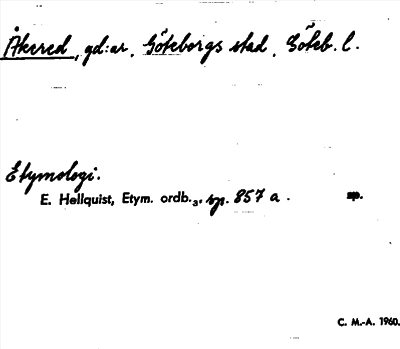 Åkered, gd:ar, Göteborgs stad, Göteb. l.
Etymologi.
E. Hellquist, Etym. ordb.₃, sp. 857 a. sp.
C. M.-A. 1960.